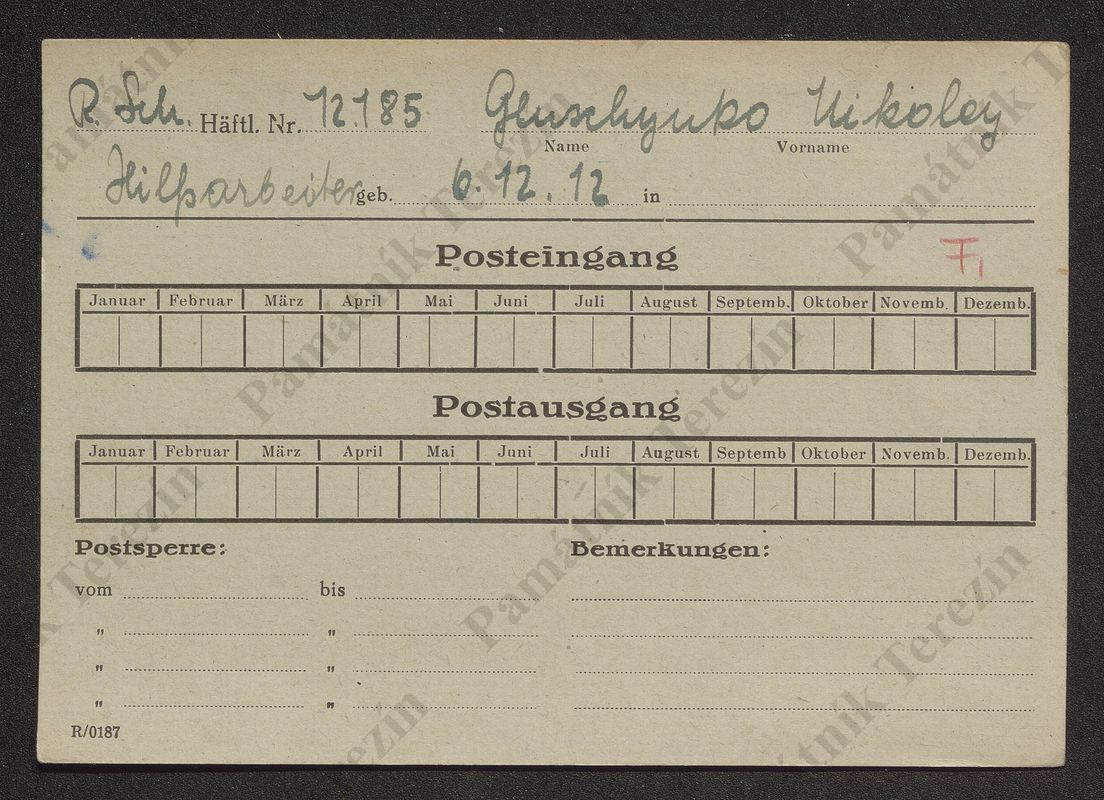 R. Sch. Häftl. Nr. 12185 Gluschynko Nikoley
Name Vorname
Hilfsarbeiter geb. 6.12.12 in
Posteingang
Januar Februar März April Mai Juni Juli August Septemb. Oktober Novemb. Dezemb.
Postausgang
Januar Februar März April Mai Juni Juli August Septemb Oktober Novemb. Dezemb.
Postsperre: Bemerkungen:
vom bis
" "
" "
" "
R/0187
Památník Terezín